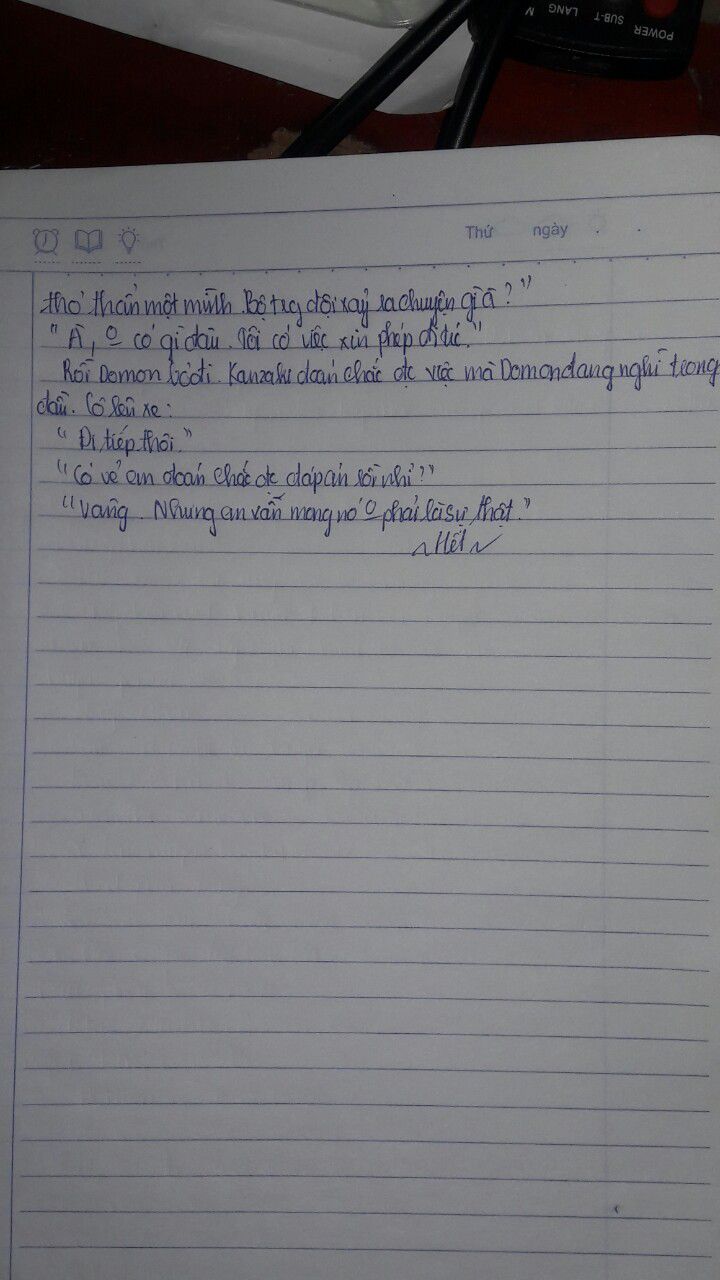 POWER SUB-T LANG M
Thứ ngày
thơ thẩn một mình. Bộ trg đội xảy ra chuyện gì à?"
"À, o có gì đâu. Tôi có việc xin phép đi trc."
Rồi Domon bc đi. Kanzaki đoán chắc đc việc mà Domon đang nghĩ trong
đầu. Cô lên xe:
"Đi tiếp thôi."
"Có vẻ em đoán chắc đc đáp án rồi nhỉ?"
"Vâng. Nhưng em vẫn mong nó o phải là sự thật."
~Hết~